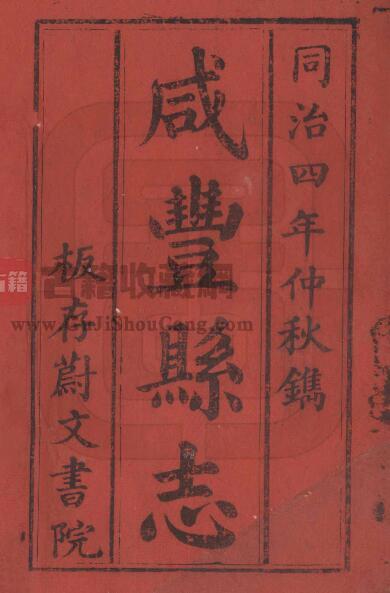 同治四年仲秋鐫
咸豐縣志
板存蔚文書院
古籍收藏網
www.GuJiShouCang.com
古籍